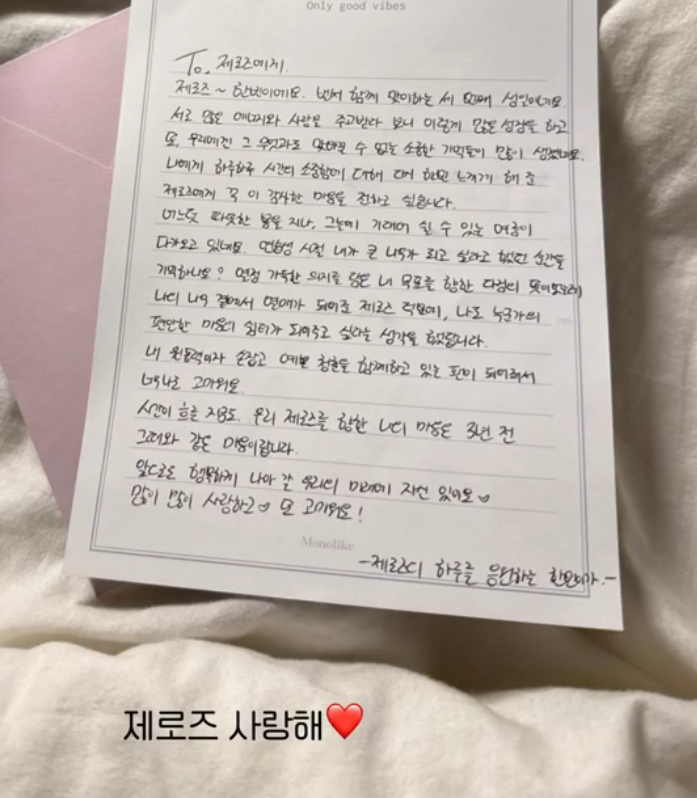 Only good vibes
To. 제로즈에게.
제로즈~ 한빈이에요. 벌써 함께 맞이하는 세 번째 생일이네요.
서로 많은 에너지와 사랑을 주고받다 보니 이렇게 많은 성장을 하고
또, 우리에겐 그 무엇과도 맞바꿀 수 없는 소중한 기억들이 많이 생겼네요.
나에게 하루하루 시간의 소중함에 대해 다시 한번 느끼게 해 준
제로즈에게 꼭 이 감사한 마음을 전하고 싶습니다.
어느덧 따뜻한 봄을 지나, 그늘에 기대어 쉴 수 있는 여름이
다가오고 있네요. 연습생 시절 내가 큰 나무가 되고 싶다고 했던 순간을
기억하나요? 열정 가득한 의지를 담은 내 목표를 향한 다짐이
나의 나무 곁에서 열매가 되어준 제로즈 덕분에, 나도 누군가의
편안한 마음의 쉼터가 되어주고 싶다는 생각을 했답니다.
내 원동력이자 손잡고 예쁜 청춘을 함께하고 있는 편이 되어줘서
너무나도 고마워요.
시간이 흐른 지금도. 우리 제로즈를 향한 나의 마음은 3년 전
그때와 같은 마음이랍니다.
앞으로도 행복하게 나아 갈 우리의 미래에 자신 있어요♡
많이 많이 사랑하고♡ 또 고마워요!
Monolike
-제로즈의 하루를 응원하는 한빈이가.-
제로즈 사랑해❤️